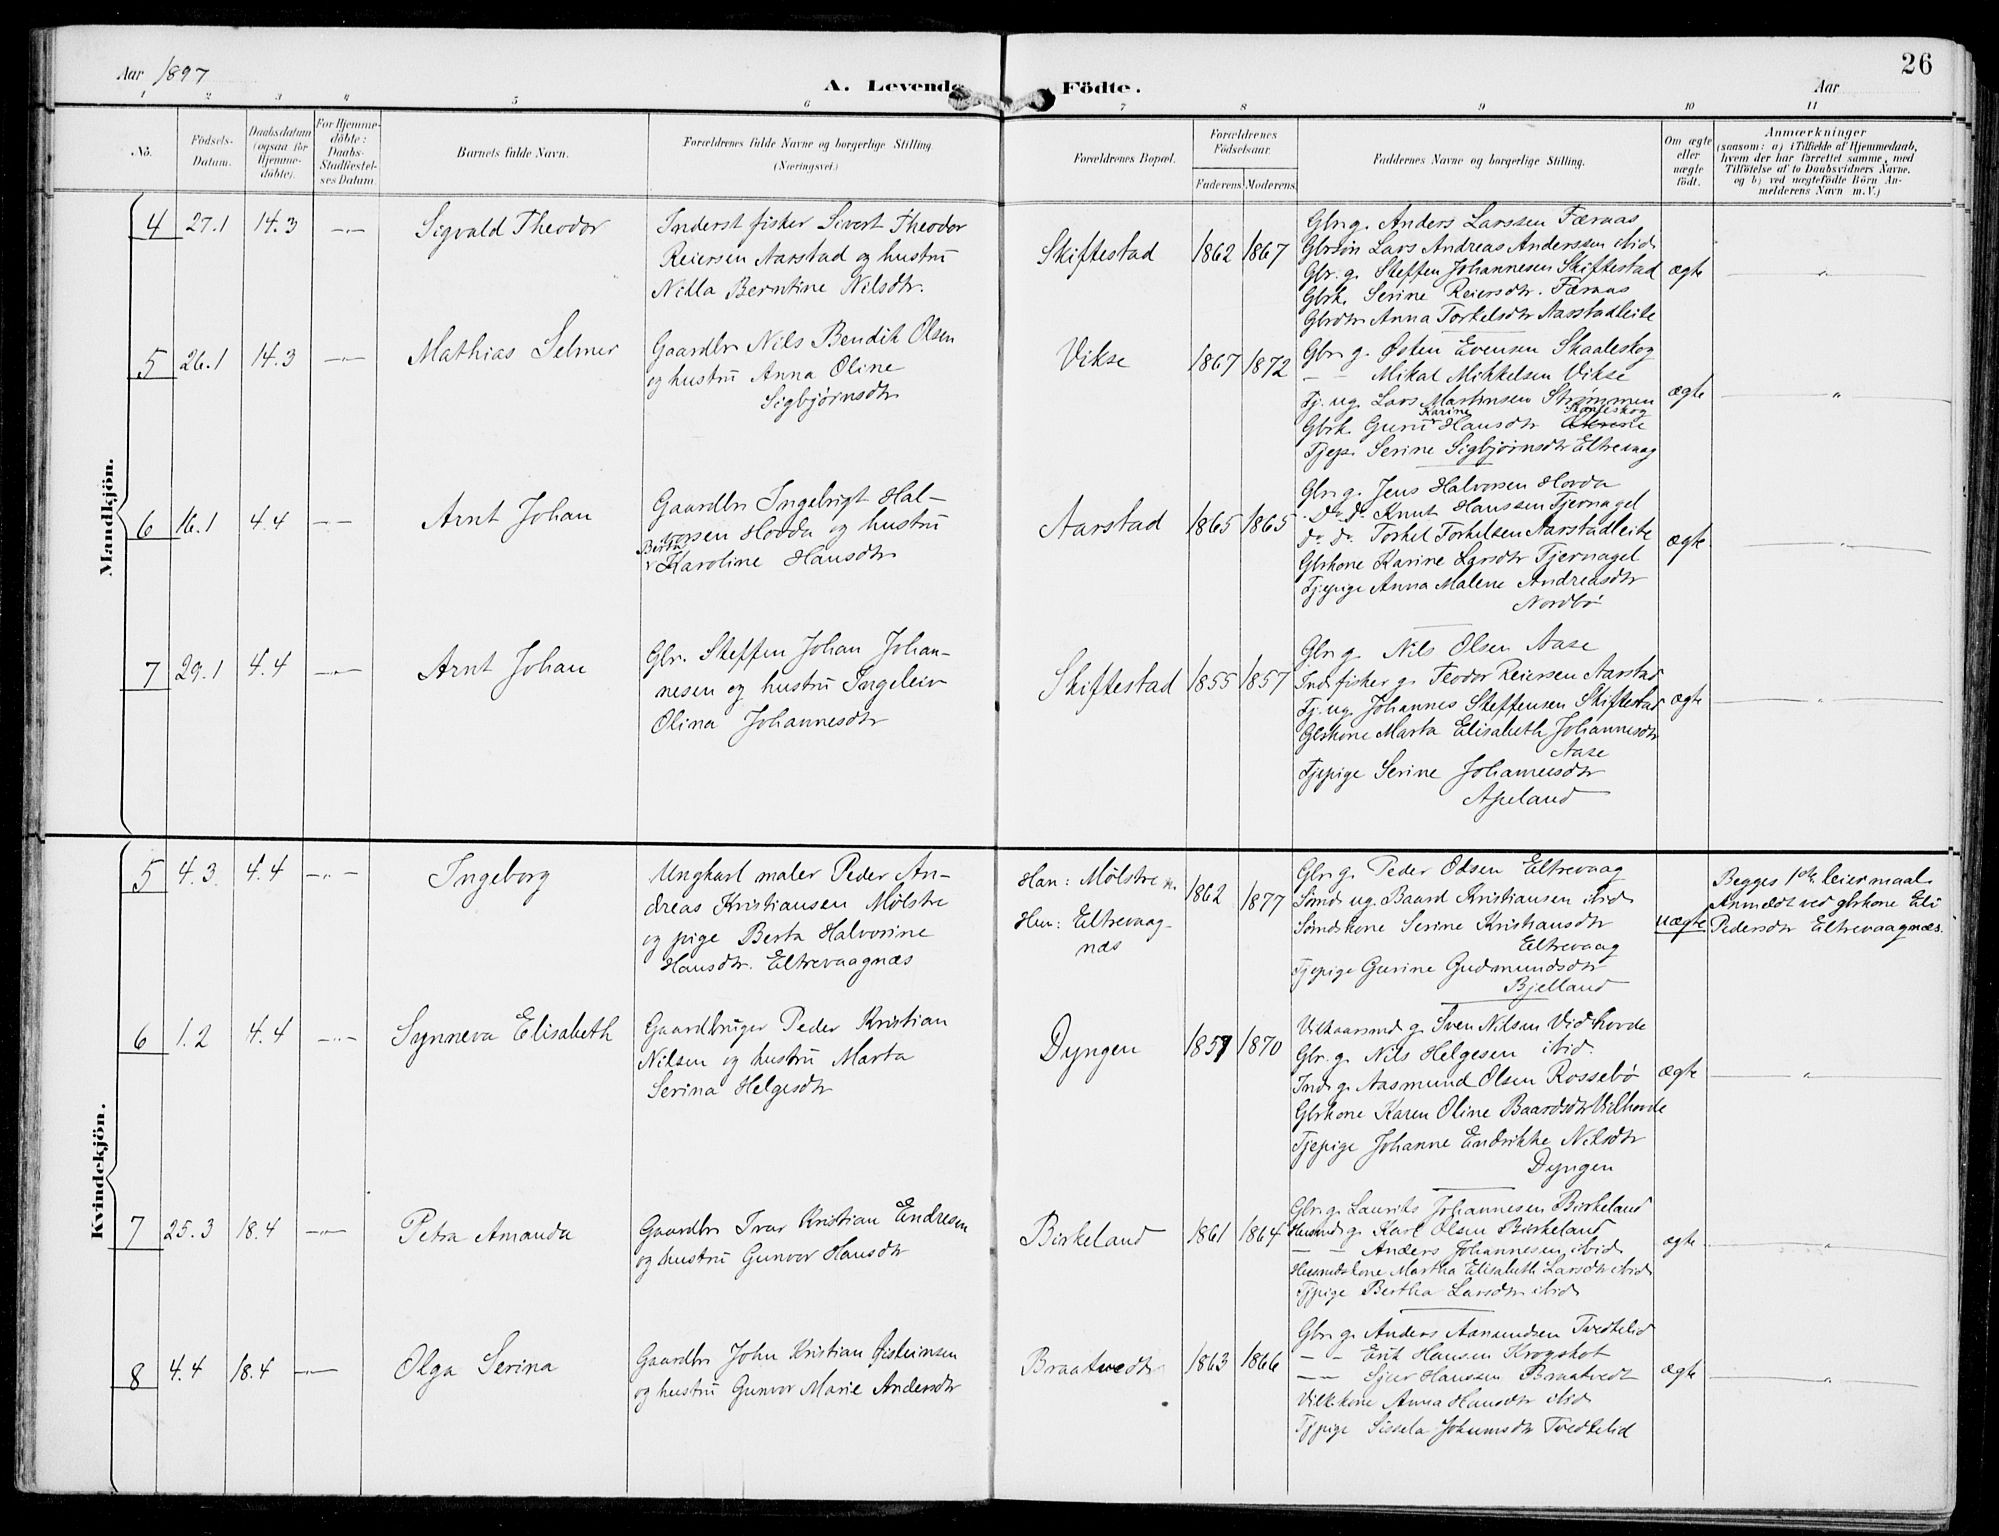 26
Aar 1897
A. Levende Födte.
Aar
1 2 3 4 5 6 7 8 9 10 11
No.
Födsels-Datum.
Daabsdatum (ogsaa for Hjemme-döbte).
For Hjemme-döbte: Daabs-Stadfæstel-ses Datum.
Barnets fulde Navn.
Forældrenes fulde Navne og borgerlige Stilling.
(Næringsvei.)
Forældrenes Bopæl.
Forældrenes Födselsaar.
Faderens. Moderens.
Faddernes Navne og borgerlige Stilling.
Om ægte eller uægte födt.
Anmærkninger
(saasom: a) i Tilfælde af Hjemmedaab, hvem der har forrettet samme, med Tilföielse af to Daabsvidners Navne. og b) ved uægtefödte Börn An-melderens Navn m. V.)
Mandkjön.
4 27.1 14.3 -"- Sigvald Theodor
Inderst fisker Sivert Theodor
Reiersen Aarstad og hustru
Nilla Berntine Nilsdtr.
Skiftestad 1862 1867
Gbr. g. Anders Larssen Færaas
Gbrsøn Lars Andreas Anderssen ibid.
Gbr. g. Steffen Johannesen Skiftestad
Gbrk. Serine Reiersdtr. Færaas
Gbrdtr Anna Torkelsdtr Aarstadleite
ægte "
5 26.1 14.3 -"- Mathias Selmer
Gaardbr Nils Bendik Olsen
og hustru Anna Oline
Sigbjørnsdtr
Vikse 1867 1872
Gbr. g. Østen Evensen Skaaleskog
— — Mikal Mikkelsen Vikse
Tj. ug. Lars Martinsen Strømmen
Karine Skaaleskog
Gbrk. Guru Hansdtr
Tjep. Serine Sigbjørnsdtr Eltrevaag
ægte "
6 16.1 4.4 -"- Arnt Johan
Gaardbr Ingebrigt Hal-
vorsen Hovda og hustru
Berta
Karoline Hansdtr
Aarstad 1865 1865
Gbr. g. Jens Halvorsen Hovda
Do. do. Knut Hanssen Tjernagel
do. do. Torkel Torkelsen Aarstadleite
Gbrkone Karine Larsdtr Tjernagel
Tjepige Anna Malene Andreasdtr
Nordbø
ægte "
7 29.1 4.4 -"- Arnt Johan
Gbr. Steffen Johan Johan-
nesen og hustru Ingeleiv
Olina Johannesdtr
Skiftestad 1855 1857
Gbr. g. Nils Olsen Aase
Ind. fisker g. Teodor Reiersen Aarstad
Tj. ug. Johannes Steffensen Skiftestad
Gbrkone Marta Elisabeth Johannesdtr
Aase
Tjepige Serine Johannesdtr
Apeland
ægte "
Kvindekjön.
5 4.3. 4.4 -"- Ingeborg
Ungkarl maler Peder An-
dreas Kristiansen Mølstre
og pige Berta Halvorine
Hansdtr. Eltrevaagnæs
Han: Mølstre n.
Hun: Eltrevaag-
næs
1862 1877
Gbr. g. Peder Odsen Eltrevaag
Smd. ug. Baard Kristiansen ibid.
Smdskone Serine Kristiansdtr
Eltrevaag
Tjepige Gurine Gudmundsdtr
Bjelland
uægte
Begges 1ste leiermaal
Anmeldt ved gbrkone Eli
Pedersdtr Eltrevaagnæs.
6 1.2 4.4 -"- Synneva Elisabeth
Gaardbruger Peder Kristian
Nilsen og hustru Marta
Serina Helgesdtr
Dyngen 1857 1870
Vilkaarsmd g. Sven Nilsen Vidhovde
Gbr. g. Nils Helgesen ibid.
Ind. g. Aasmund Olsen Rossebø
Gbrkone Karen Oline Baardsdtr Vidhovde
Tjepige Johanne Endrikke Nilsdtr
Dyngen
ægte "
7 25.3 18.4 -"- Petra Amanda
Gaardbr Ivar Kristian Endresen
og hustru Gunvor Hansdtr
Birkeland 1861 1864
Gbr. g. Laurits Johannesen Birkeland
Husmd. g. Karl Olsen Birkeland
— — Anders Johannesen ibid.
Husmdskone Martha Elisabeth Larsdtr ibid.
Tjpige Bertha Larsdtr ibid.
ægte "
8 4.4 18.4 -"- Olga Serina
Gaardbr John Kristian Østeinsen
og hustru Gunvor Marie Andersdtr
Braatvedt 1863 1866
Gbr. g. Anders Aanundsen Tvedtelid
— — Erik Hansen Krogshot
— — Sjur Hanssen Braatvedt
Vilk.kone Anna Hansdtr ibid.
Tjpige Sissela Johannesdtr Tvedtelid
ægte "